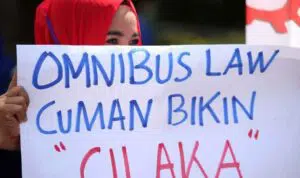 OMNIBUS LAW
CUMAN BIKIN
"CILAKA"